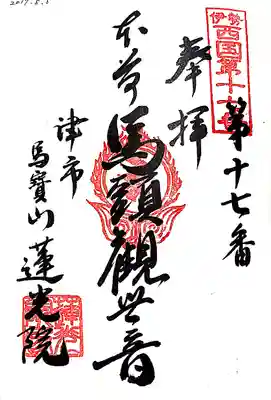 2017.5.3
伊勢
西国第十七番
第十七番
奉拝
本尊馬頭観世音
津市
馬寶山蓮光院